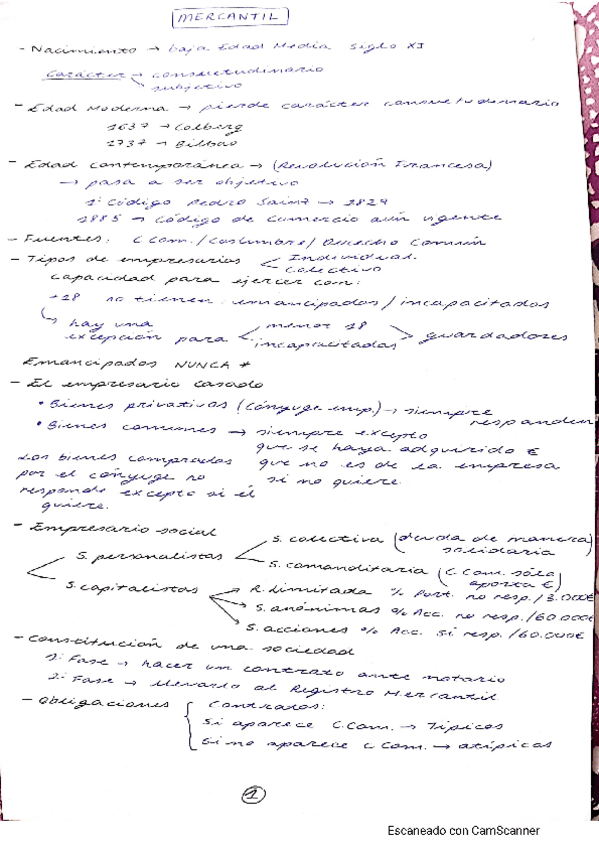 MERCANTIL
- Nacimiento → baja Edad Media siglo XI
Carácter → consuetudinario
subjetivo
- Edad Moderna → pierde carácter consuetudinario
1637 → Colberg
1737 → Bilbao
- Edad contemporánea → (Revolución Francesa)
→ pasa a ser objetivo
1º Código Pedro Sainz → 1829
1885 → Código de Comercio aún vigente
- Fuentes: C.Com./Costumbre/Derecho Común
- Tipos de empresarios Individual.
Colectivo
Capacidad para ejercer com:
+18 no tienen emancipados/incapacitados
hay una excepción para menor 18
incapacitados guardadores
Emancipados NUNCA *
- El empresario casado
• Bienes privativos (cónyuge emp.) → siempre responden
• Bienes comunes → siempre excepto
que se haya adquirido €
que no es de la empresa
si no quiere.
Los bienes comprados
por el cónyuge no
responde excepto si él
quiere.
- Empresario social
S. personalistas S. colectiva (deuda de manera solidaria
S. comanditaria (C.Com. sólo aporta €)
S. capitalistas R. limitada % Part. no resp./3.000€
S. anónimas % Acc. no resp./60.000€
S. acciones % Acc. si resp./60.000€
- Constitución de una sociedad
1º Fase → hacer un contrato ante notario
2º Fase → llevarlo al Registro Mercantil
- Obligaciones Contrados:
Si aparece C.Com. → Típicos
Si no aparece C Com. → atípicos
1
Escaneado con CamScanner